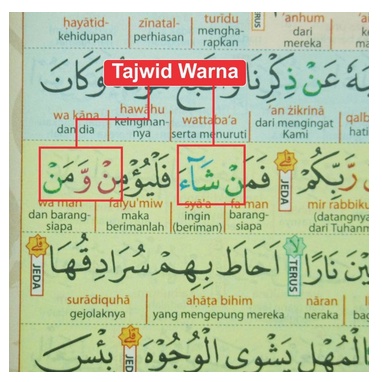 hayātid- zīnatal- turidu 'anhum
kehidupan perhiasan mengha-rapkan dari mereka
TERUS
Tajwid Warna
عَنْ ذِكْرِنَا وَكَانَ
wa kāna hawāhu wattaba'a 'an żikrinā qalb
dan dia keinginan-nya serta menuruti dari mengingat Kami hati
رَّبِّكُمْ ۗ فَمَنْ شَاۤءَ فَلْيُؤْمِنْ وَّمَنْ
JEDA
wa man falyu'miw syā'a fa man mir rabbiku
dan barang-siapa maka berimanlah ingin (beriman) barang-siapa (datangnya) dari Tuhanm
نَارًاۙ اَحَاطَ بِهِمْ سُرَادِقُهَاۗ
JEDA TERUS
surādiquhā ahāṭa bihim nāran
gejolaknya yang mengepung mereka neraka
كَالْمُهْلِ يَشْوِى الْوُجُوْهَۗ بِئْسَ
JEDA